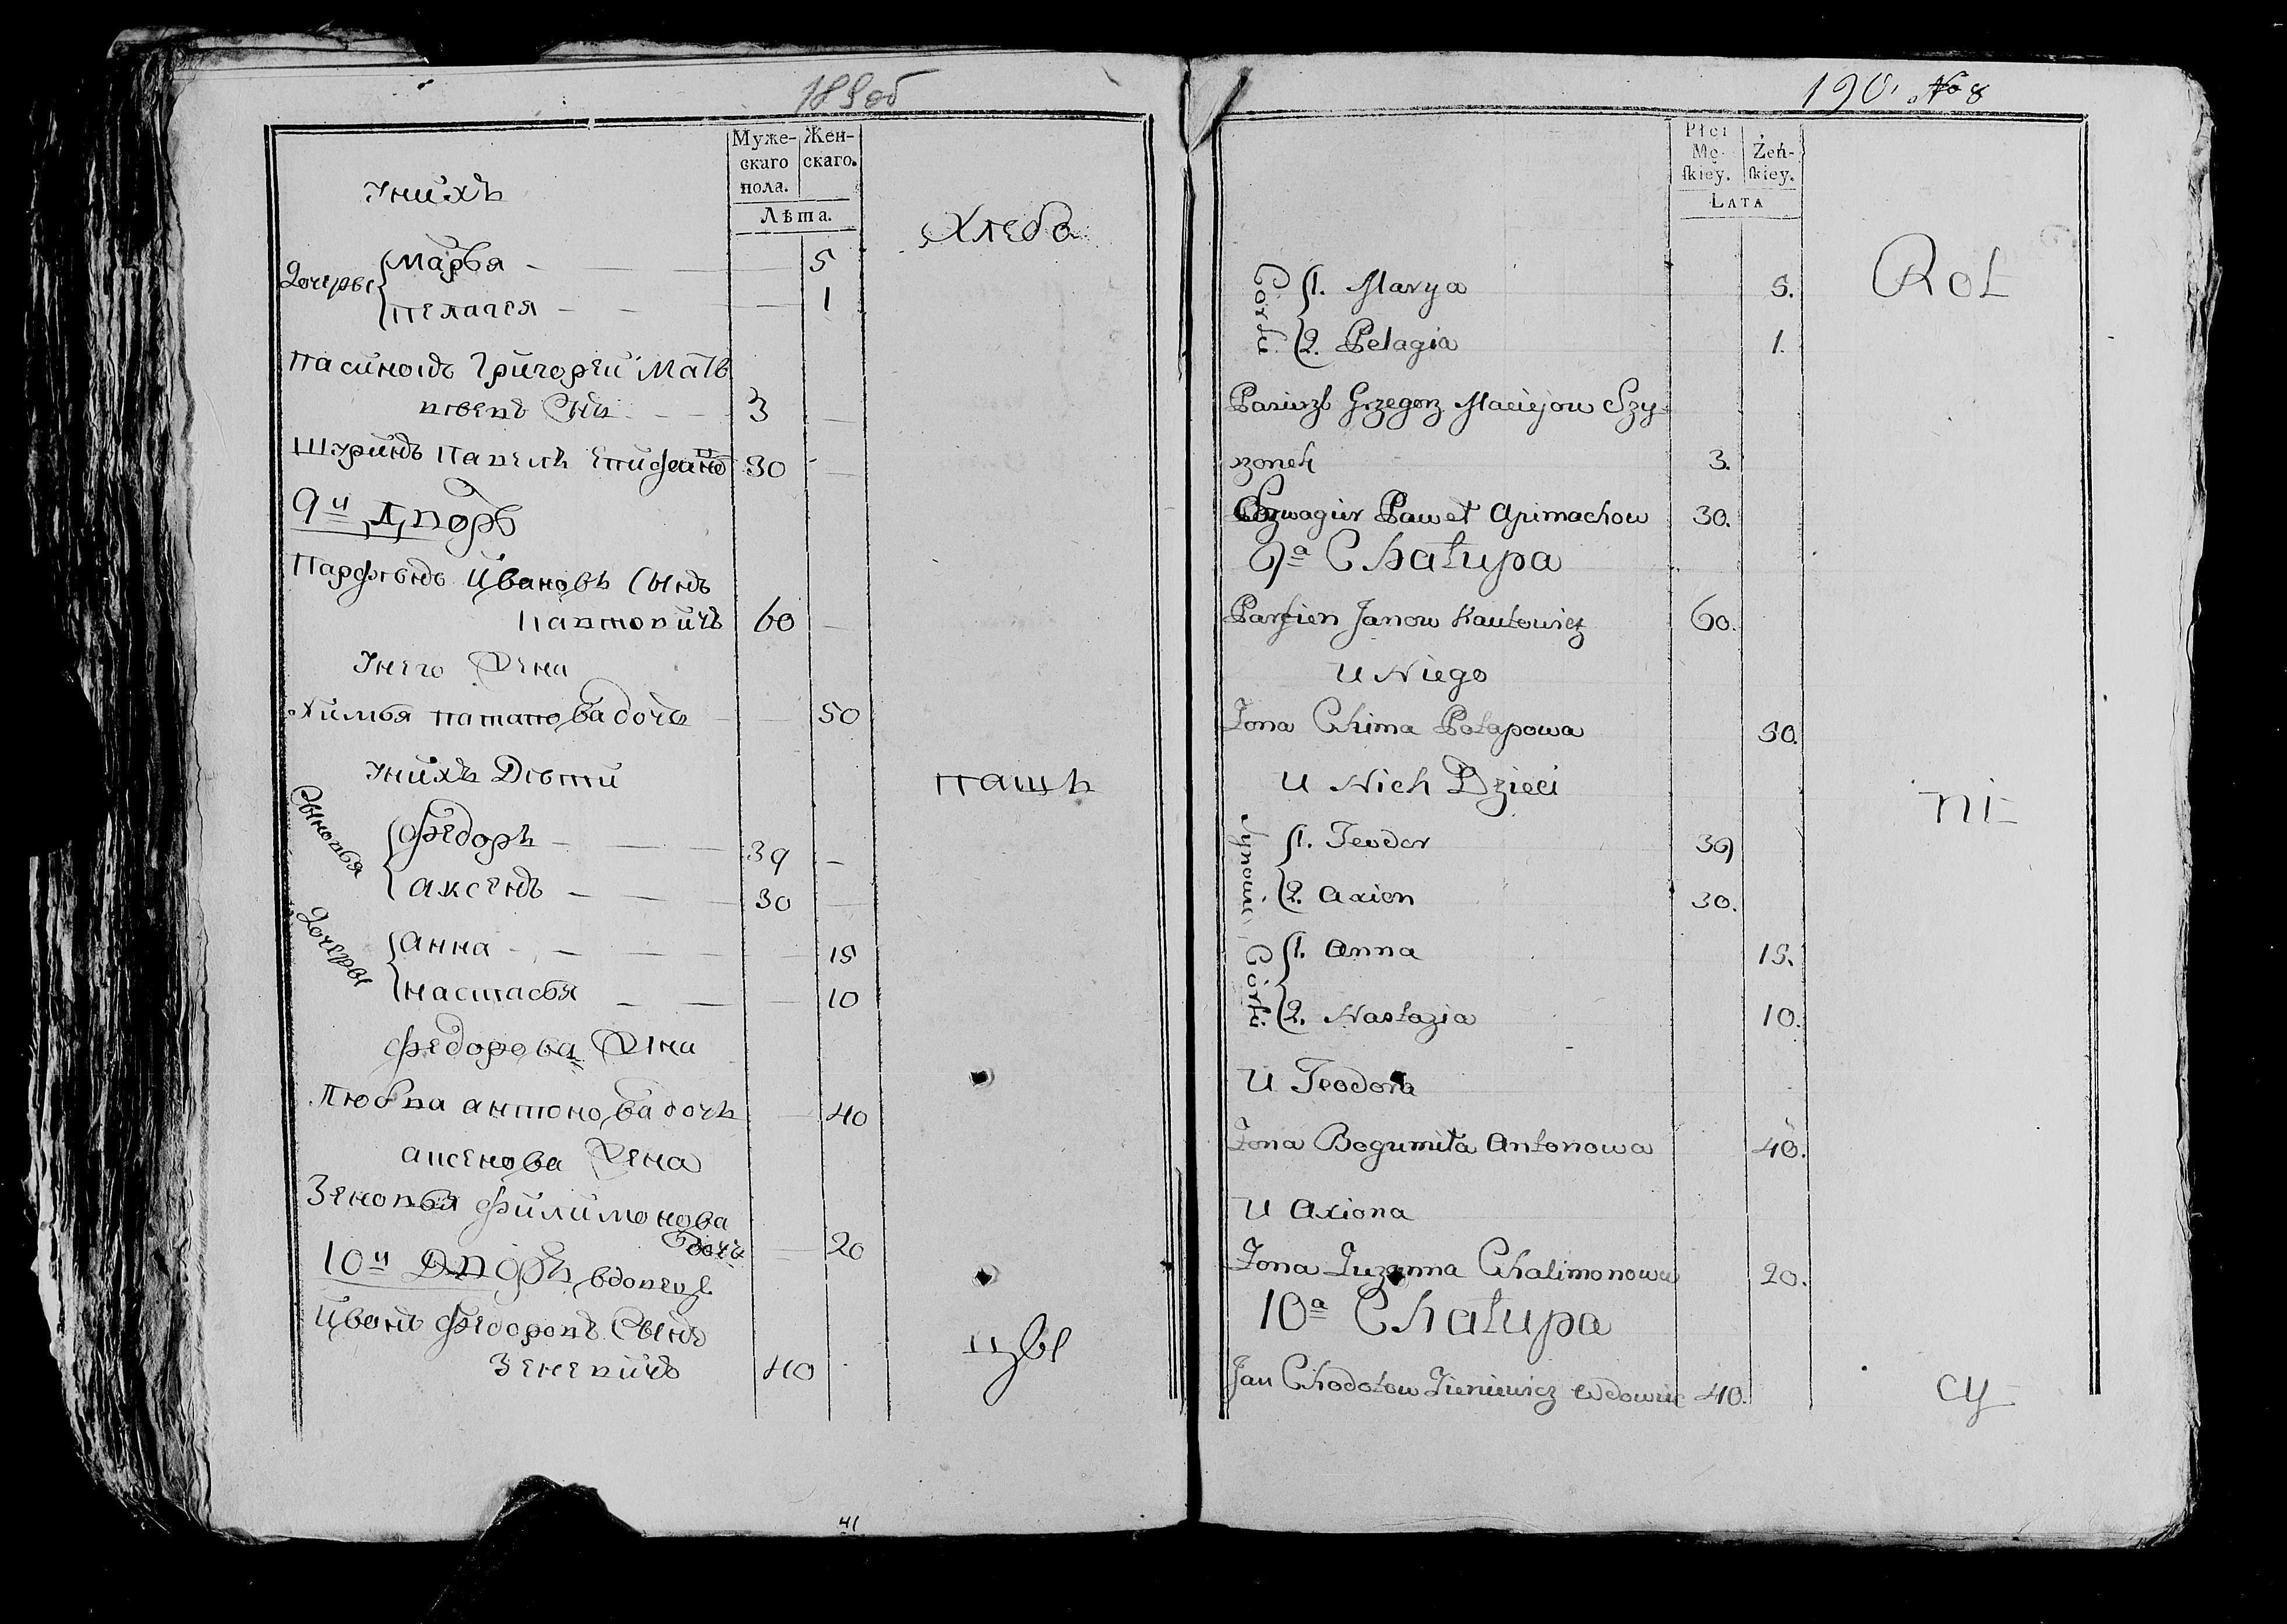 189об
Муже- Жен-
скаго скаго.
пола.
Лѣта.
Унихъ
Хлебо
Дочеры
Марья - 5
Пелагея - 1
Пасынокъ Григорей Матв
3
Шуринъ Павелъ 30
9й Дворъ
Парфенъ Ивановъ Сынъ
60
Унего Жена
Химья Потапова дочь 50
Унихъ Дѣти
пашь
Сыновья
Федоръ - 39 -
Аксенъ - 30
Дочеры
Анна - 15
Настасья - 10
Федорова Жена
Любва Антонова дочь 40
Аксенова Жена
Зеновья Филимонова
дочь 20
10й Дворъ вдовецъ
Иванъ Федоровъ Сынъ
Зеневичъ 40
цы
41
190. № 8
Płci
Mę- Żeń-
skiey. skiey.
LATA
Rol
Corki
1. Marya 5.
2. Pelagia 1.
Pasierzb Grzegorz Maciejow Szy-
zonek 3.
Szwagier Paweł Apimachow 30.
9a Chałupa
Parfien Janow Kautowicz 60.
U Niego
Żona Chima Potapowa 50.
U Nich Dzieci
ni-
Synowie
1. Teodor 39
2. Axion 30.
Córki
1. Anna 15.
2. Nastazia 10.
U Teodora
Żona Bogumiła Antonowa 40.
U Axiona
Żona Zuzanna Chalimonowa 20.
10a Chałupa
Jan Chodotow Zieniewicz wdowiec 40.
cy